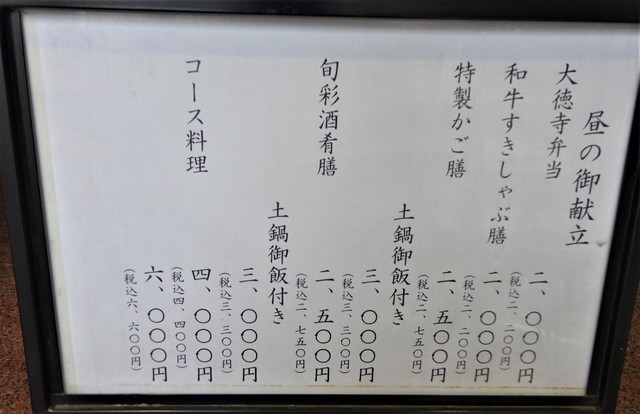 昼の御献立
大徳寺弁当
二、〇〇〇円
(税込二、二〇〇円)
和牛すきしゃぶ膳
二、〇〇〇円
(税込二、二〇〇円)
特製かご膳
二、五〇〇円
(税込二、七五〇円)
土鍋御飯付き
三、〇〇〇円
(税込三、三〇〇円)
旬彩酒肴膳
二、五〇〇円
(税込二、七五〇円)
土鍋御飯付き
三、〇〇〇円
(税込三、三〇〇円)
コース料理
四、〇〇〇円
(税込四、四〇〇円)
六、〇〇〇円
(税込六、六〇〇円)